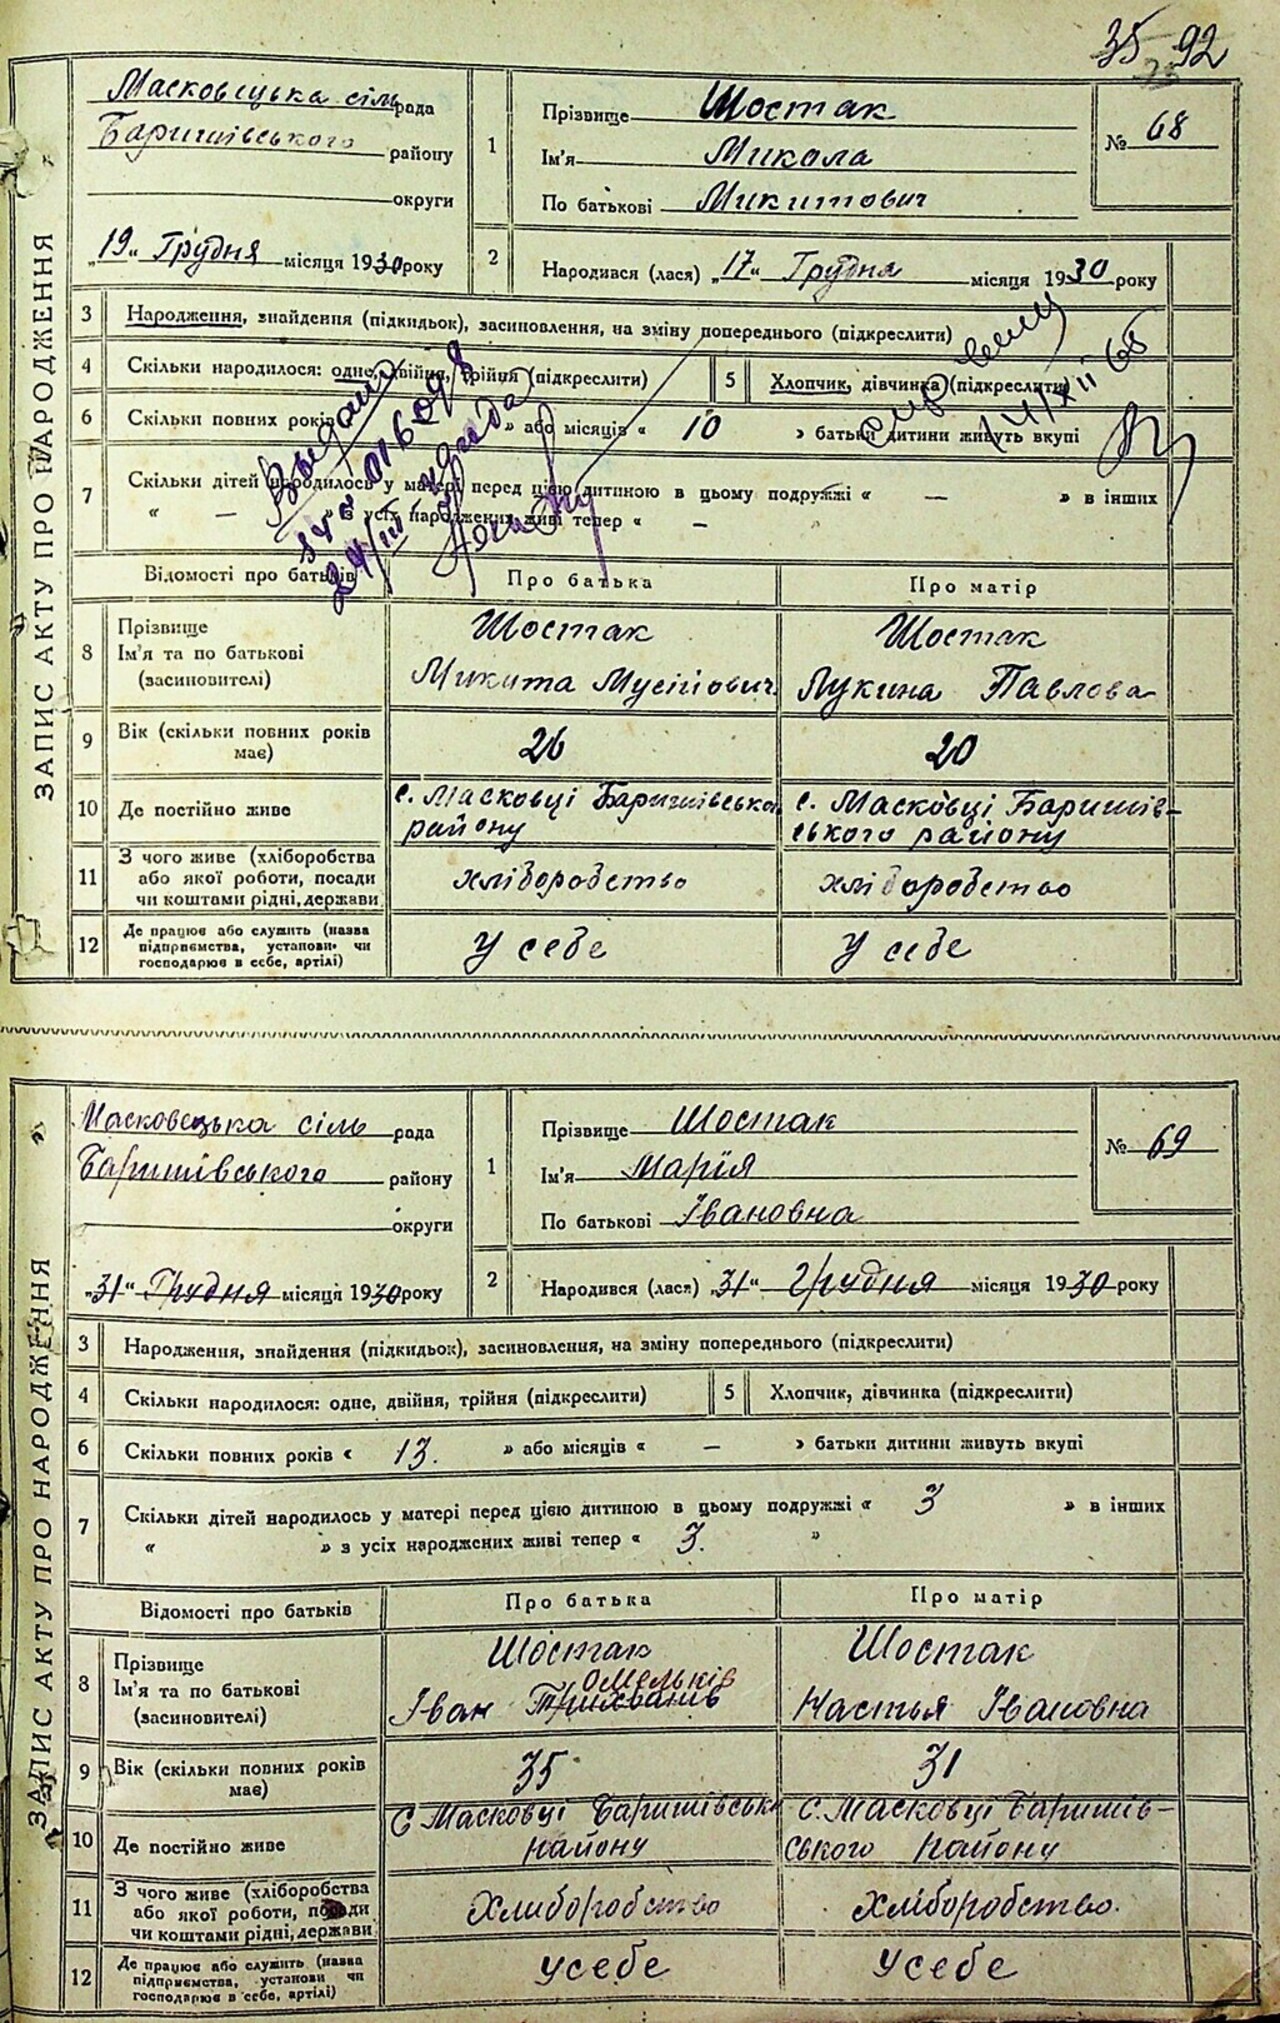 35 92
ЗАПИС АКТУ ПРО НАРОДЖЕННЯ
Масковецька сіль рада
Баришівського району
округи
„19“ Грудня місяця 1930 року
1
Прізвище Шостак
Ім'я Микола
По батькові Микитович
№ 68
2
Народився (лася) „17“ Грудня місяця 1930 року
3 Народження, знайдення (підкидьок), засиновлення, на зміну попереднього (підкреслити)
4 Скільки народилося: одне, двійня, трійня (підкреслити)
5 Хлопчик, дівчинка (підкреслити)
6 Скільки повних років » або місяців « 10 » батьки дитини живуть вкупі
7 Скільки дітей народилось у матері перед цією дитиною в цьому подружжі « — » в інших
« — » з усіх народжених живі тепер « —
14/XII 68
Відомості про батьків Про батька Про матір
8 Прізвище
Ім'я та по батькові
(засиновителі)
Шостак
Микита Мусійович
Шостак
Лукина Павлова
9 Вік (скільки повних років має) 26 20
10 Де постійно живе
с. Масковці Баришівська
району
с. Масковці Баришів-
ського району
11 З чого живе (хліборобства
або якої роботи, посади
чи коштами рідні, держави
хліборобство хліборобство
12 Де працює або служить (назва
підприємства, установи чи
господарює в себе, артілі)
У себе У себе
ЗАПИС АКТУ ПРО НАРОДЖЕННЯ
Масковецька сіль рада
Баришівського району
округи
„31“ Грудня місяця 1930 року
1
Прізвище Шостак
Ім'я Марія
По батькові Івановна
№ 69
2
Народився (лася) „31“ Грудня місяця 1930 року
3 Народження, знайдення (підкидьок), засиновлення, на зміну попереднього (підкреслити)
4 Скільки народилося: одне, двійня, трійня (підкреслити)
5 Хлопчик, дівчинка (підкреслити)
6 Скільки повних років « 13. » або місяців « — » батьки дитини живуть вкупі
7 Скільки дітей народилось у матері перед цією дитиною в цьому подружжі « 3 » в інших
« » з усіх народжених живі тепер « 3. »
Відомості про батьків Про батька Про матір
8 Прізвище
Ім'я та по батькові
(засиновителі)
Шостак
Омельків
Іван
Шостак
Настья Івановна
9 Вік (скільки повних років має) 35 31
10 Де постійно живе
С Масковці Баришівськ
району
с. Масковці Баришів-
ського району
11 З чого живе (хліборобства
або якої роботи, посади
чи коштами рідні, держави
Хлиборобство Хліборобство.
12 Де працює або служить (назва
підприємства, установи чи
господарює в себе, артілі)
Усебе Усебе